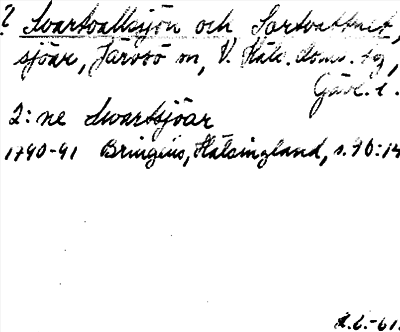 ? Svartvallssjön och Sortvattnet,
sjöar, Järvsö sn, V. Häls. doms. tg,
Gävl. l.
2: ne Swartsjöar
1790-91 Bringéus, Hälsingland, s. 70:14
-61.